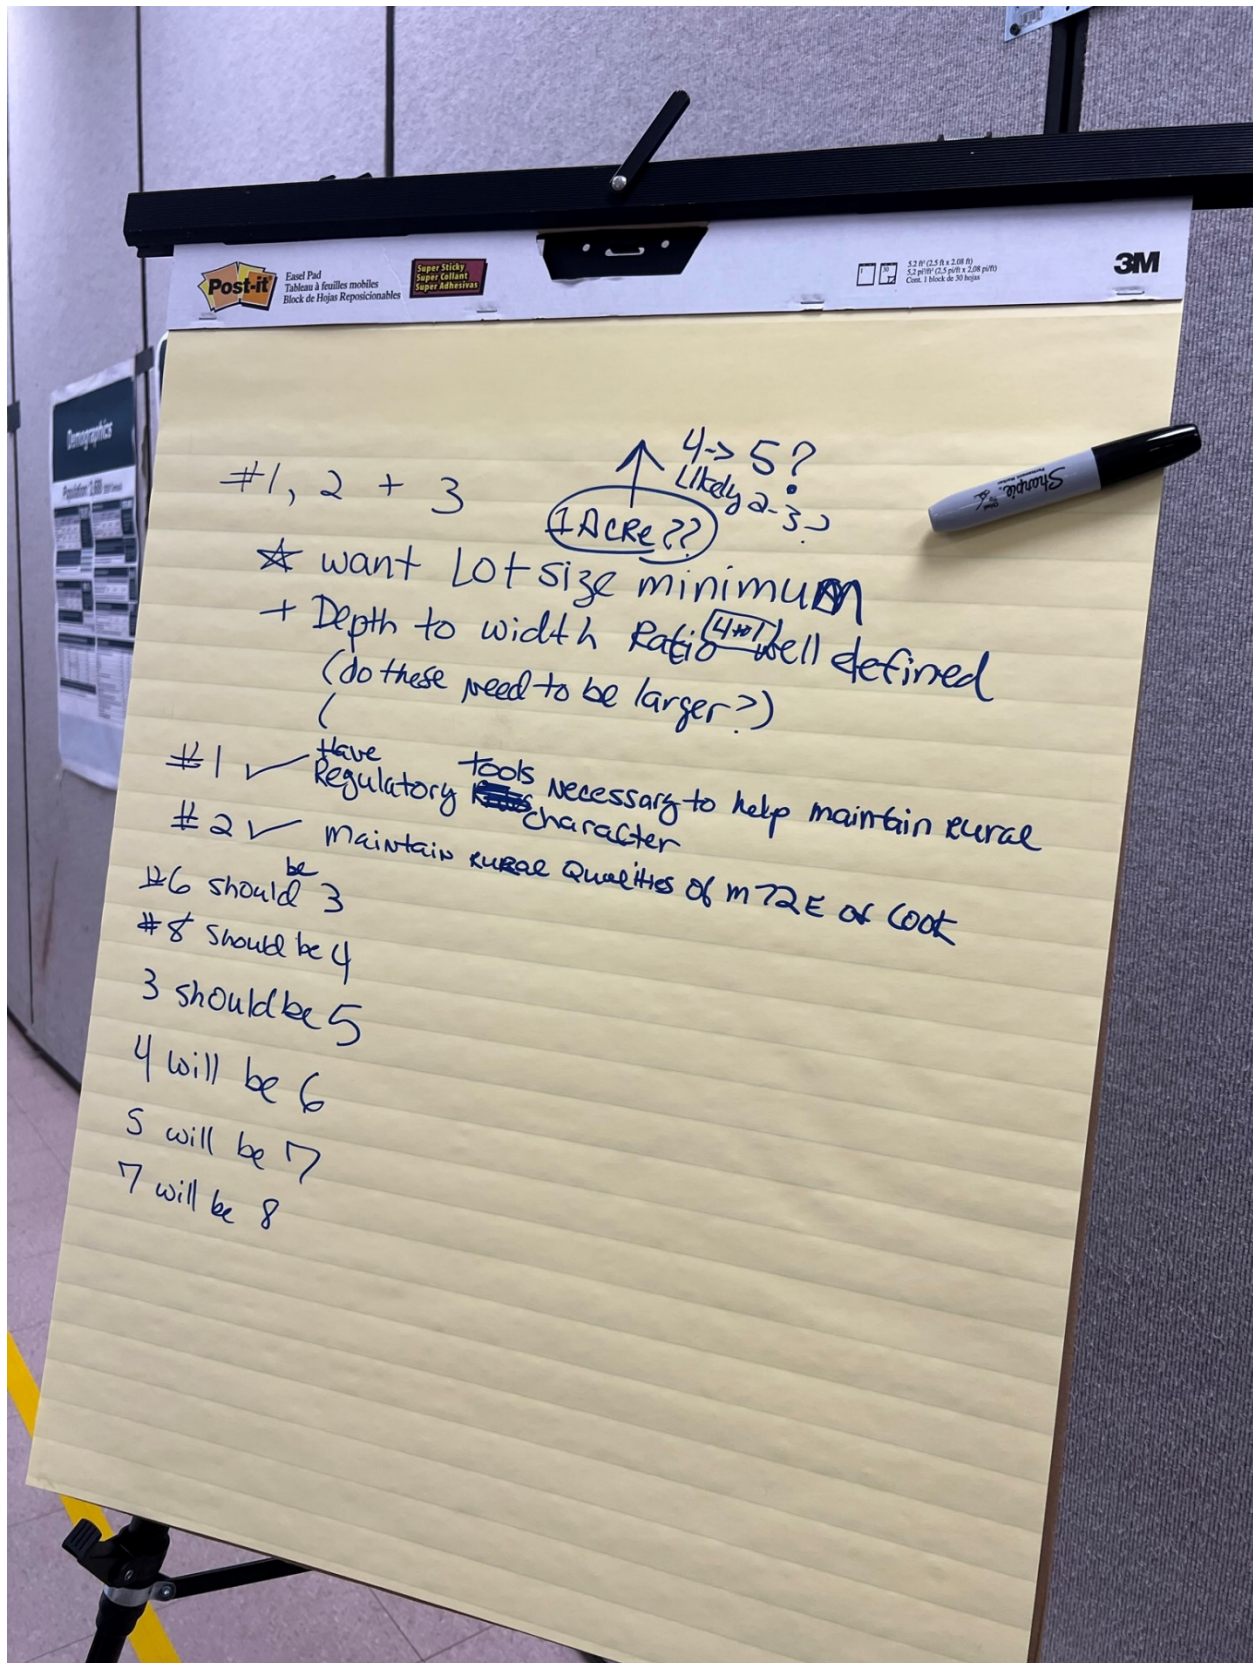 Post-it
Easel Pad
Tableau à feuilles mobiles
Block de Hojas Reposicionables
Super Sticky
Super Collant
Super Adhesivas
5.2 ft² (2.5 ft x 2.08 ft)
5,2 pi²/ft² (2,5 pi/ft x 2,08 pi/ft)
Cont. 1 block de 30 hojas
3M
Demographics
Population
Sharpie
4 -> 5?
#1, 2 + 3
Likely 2-3?
1 ACRe??
☆ want Lot size minimum
+ Depth to width Ratio 4 to 1 well defined
(do these need to be larger?)
(
#1 ✓ Have Regulatory tools necessary to help maintain rural
character
#2 ✓ maintain rural Qualities of m72E of Cook
#6 should be 3
#8 should be 4
3 should be 5
4 will be 6
5 will be 7
7 will be 8